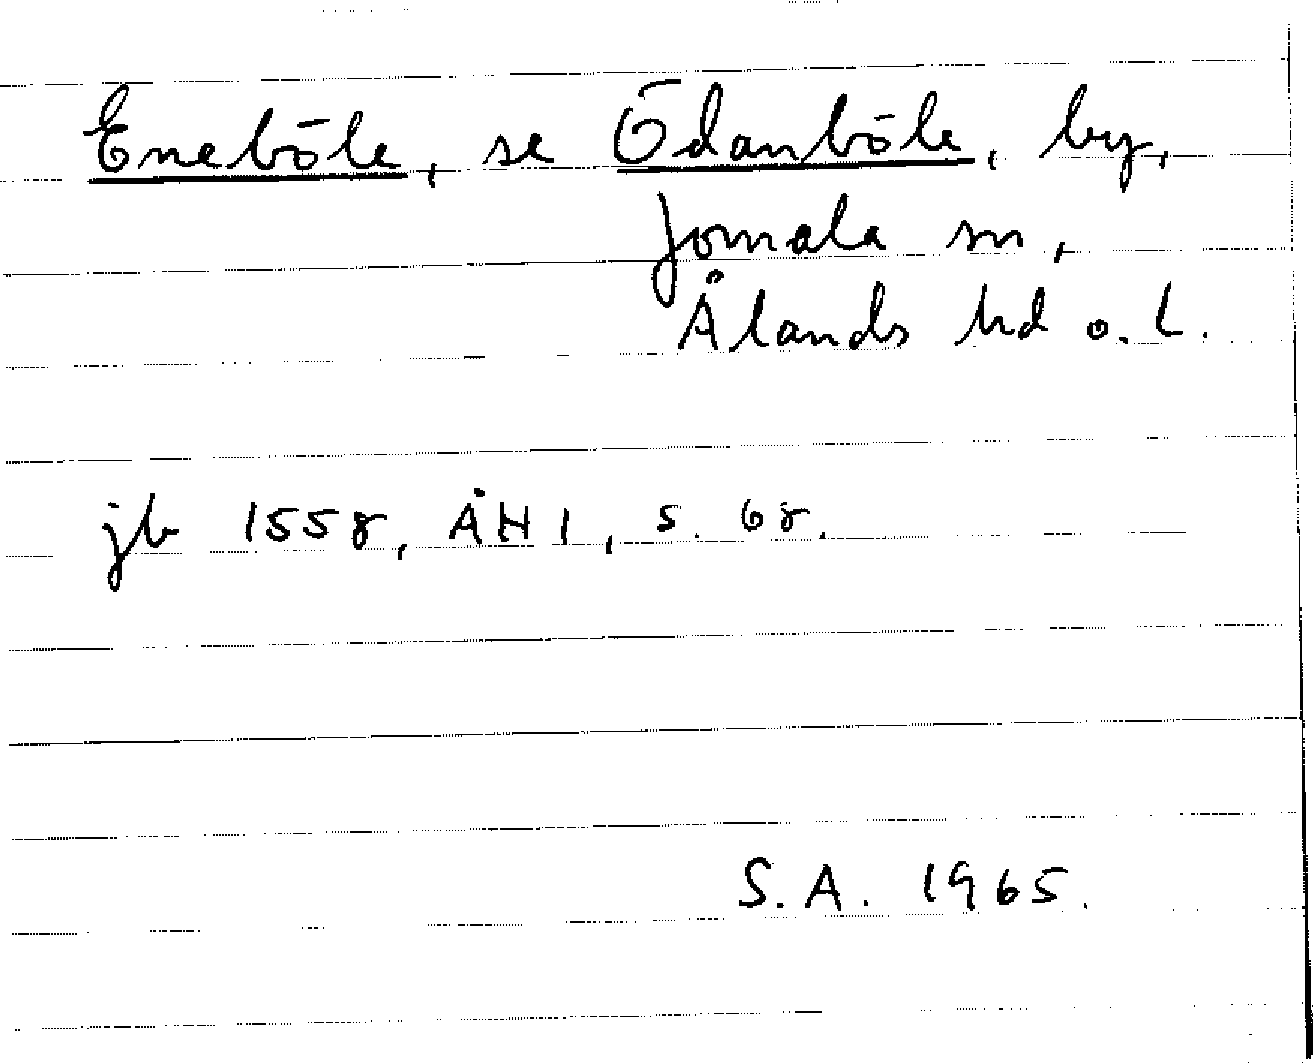 Eneböle, se Ödanböle, by,
Jomala sn,
Ålands hd o. l.
jb 1558, ÅH 1, s. 68.
S.A. 1965.